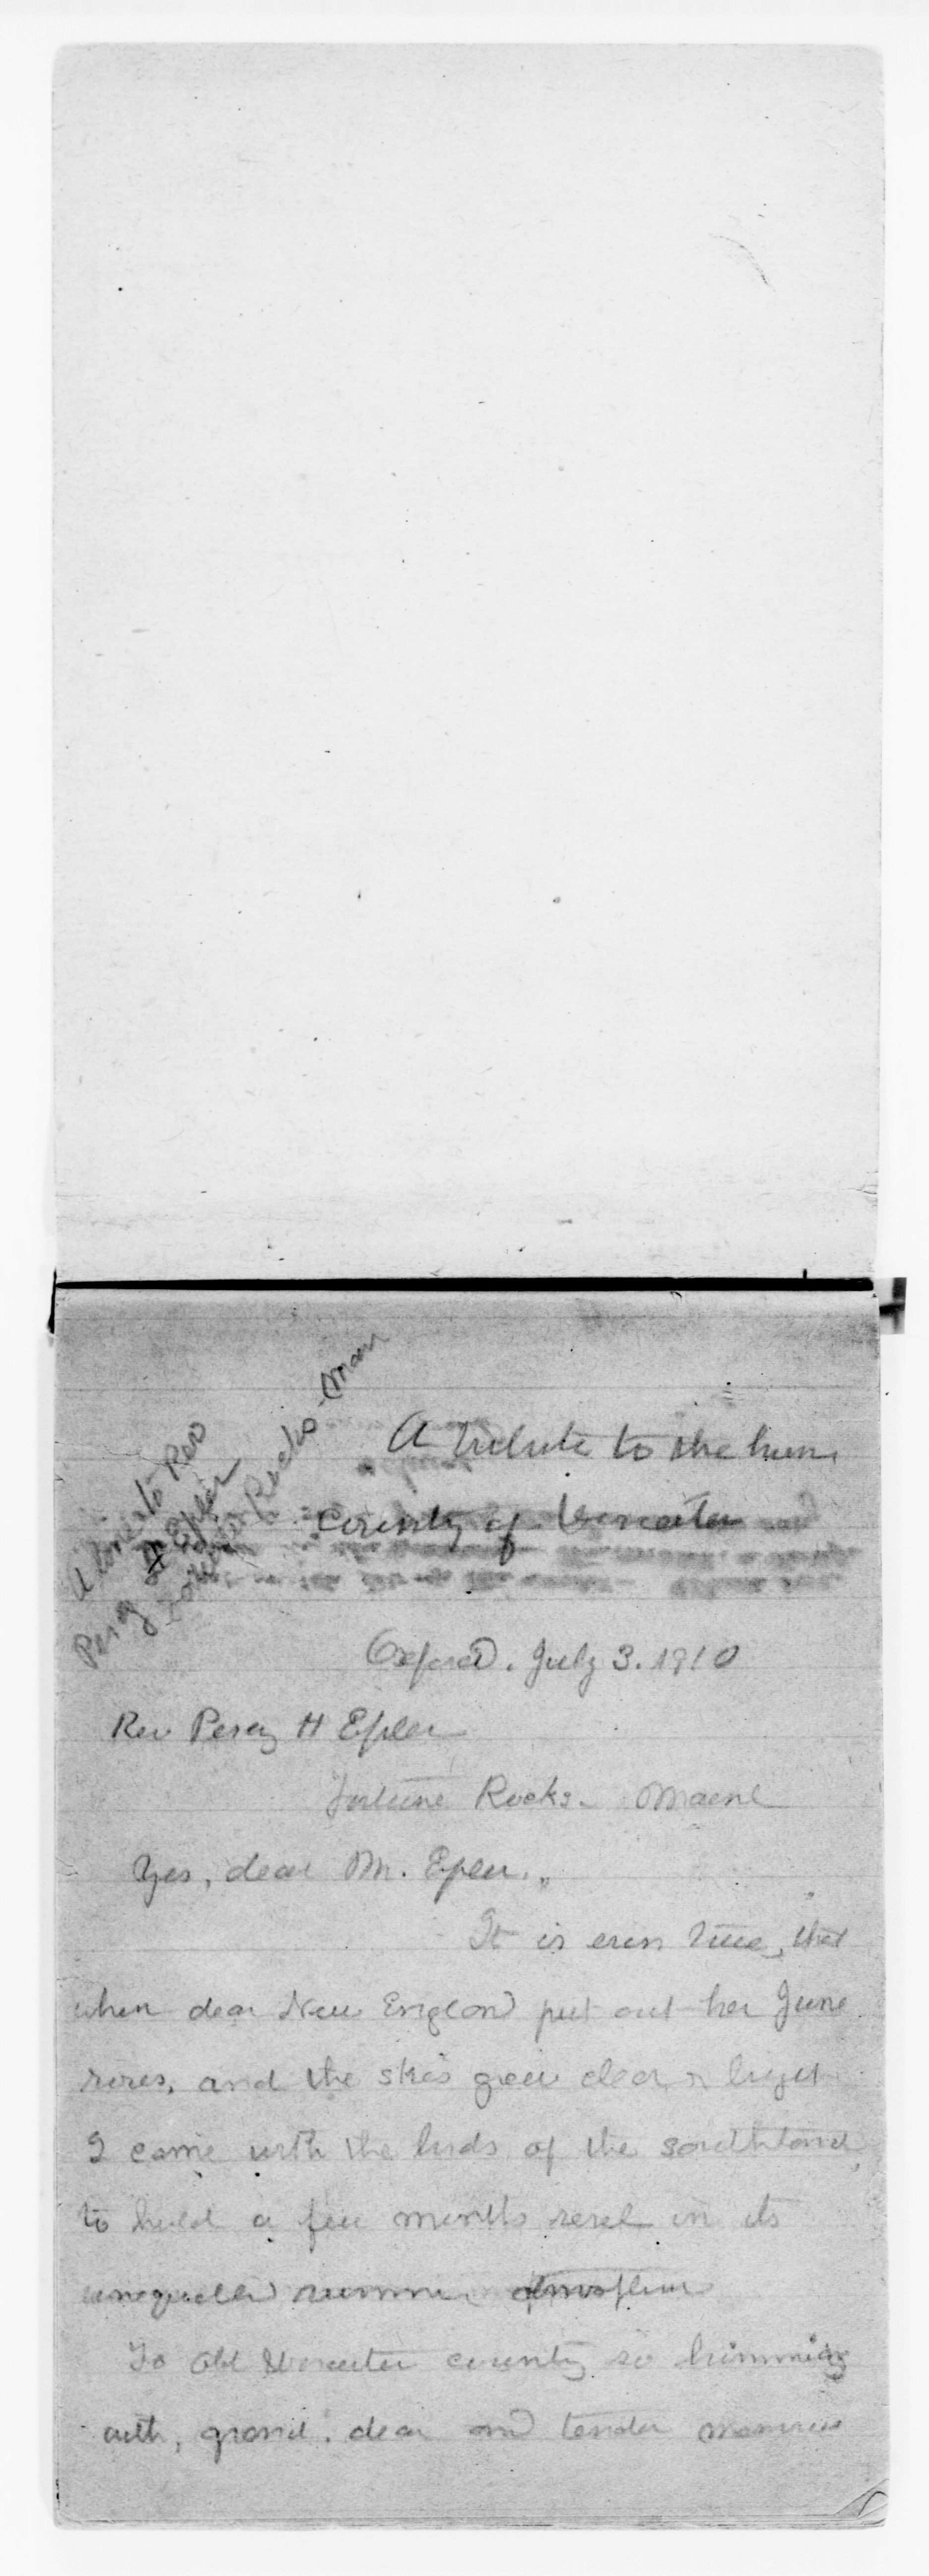 A line to Rev
Percy H Epler
Fortune Rocks - Main
A tribute to the home
county of Worcester
Oxford. July 3. 1910
Rev Percy H Epler
Fortune Rocks. Maine
Yes, dear Mr. Epler.,
It is even true, that
when dear New England put out her June
roses, and the skies grew clear & bright
I came with the birds of the southland,
to hold a few months revel in its
unequalled summer atmosphere
To old Worcester county so brimming
with, grand. dear and tender memories